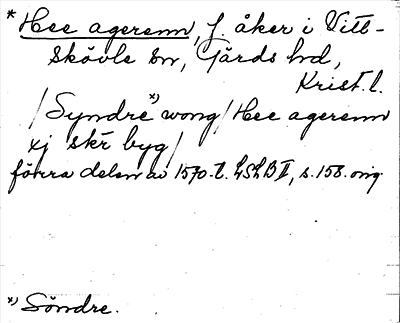 * Hee agerenn, f. åker i Vitt-
skövle sn, Gärds hd,
Krist. l.
/Syndre *) wong/ Hee agerenn
xj skr byg/
förra delen av 1570-t. LSLB II, s. 158. orig.
*) Söndre.